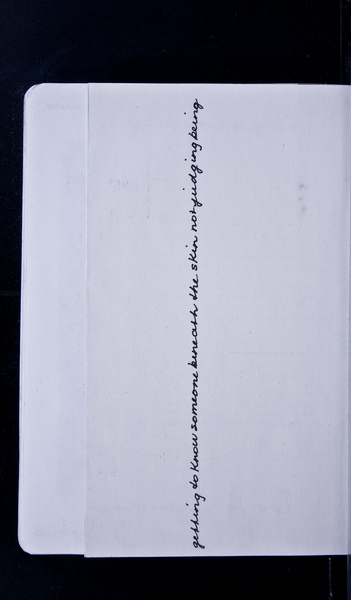 getting to know someone beneath the skin not judging being